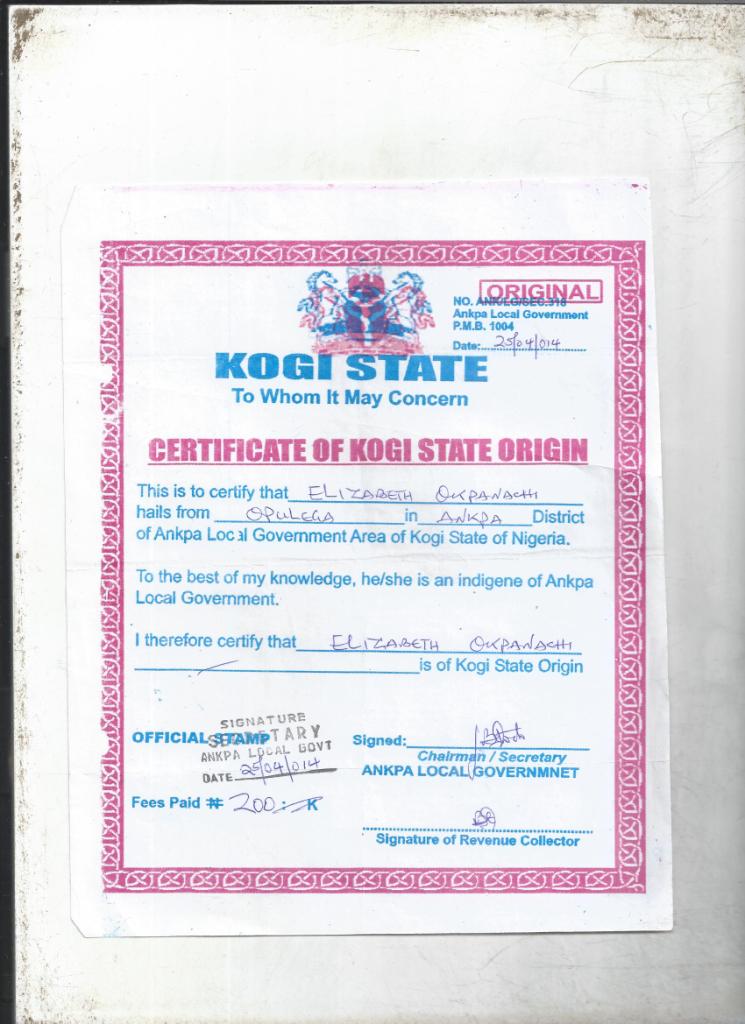 ORIGINAL
NO. ANK/LG/SEC.318
Ankpa Local Government
P.M.B. 1004
Date: 25/04/014
KOGI STATE
To Whom It May Concern
CERTIFICATE OF KOGI STATE ORIGIN
This is to certify that ELIZABETH OKPANACHI
hails from OPULEGA in ANKPA District
of Ankpa Local Government Area of Kogi State of Nigeria.
To the best of my knowledge, he/she is an indigene of Ankpa
Local Government.
I therefore certify that ELIZABETH OKPANACHI
is of Kogi State Origin
OFFICIAL STAMP
SIGNATURE
SECRETARY
ANKPA LOCAL GOVT
DATE 25/04/014
Signed:
Chairman / Secretary
ANKPA LOCAL GOVERNMNET
Fees Paid ₦ 200 : K
Signature of Revenue Collector